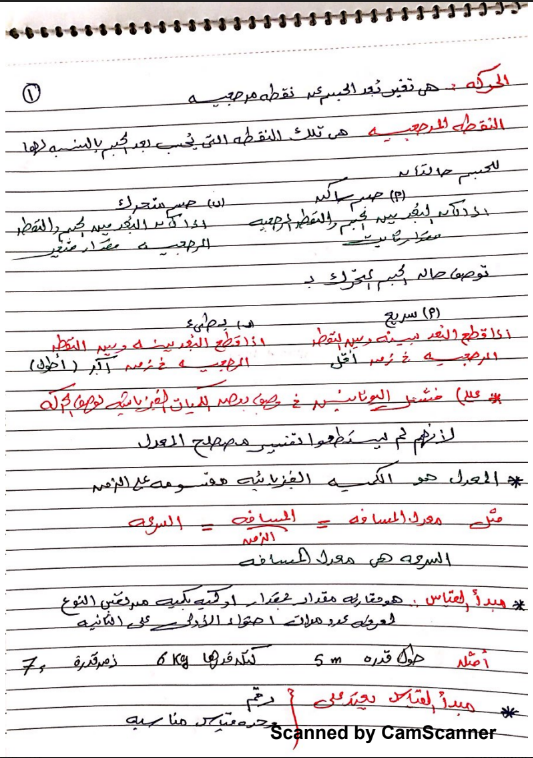 الحركة : هى تغير بُعد الجسم عن نقطه مرجعيه
①
النقطه المرجعيه هى تلك النقطه التى يُحسب بعد الجسم بالنسبه لها
للجسم حالتان
(أ) جسم ساكن (ب) جسم متحرك
اذا كان البُعد بين الجسم والنقطه المرجعيه اذا كان البُعد بين الجسم والنقطه
مقدار ثابت المرجعيه مقدار متغير
توصف حاله الجسم المتحرك بـ
(أ) سريع (ب) بطئ
اذا قطع البُعد بينه وبين النقطه اذا قطع البُعد بينه وبين النقطه
المرجعيه فى زمن أقل المرجعيه فى زمن أكبر (أطول)
* علل) فشل اليونانيين فى وصف بعض الكميات الفيزيائيه لوصف الحركه
لأنهم لم يستطعوا تفسير مصطلح المعدل
* المعدل هو الكميه الفيزيائيه مقسومه على الزمن
مثل معدل المسافه = المسافه = السرعه
الزمن
السرعه هى معدل المسافه
* مبدأ القياس : هو مقارنه مقدار بمقدار او كميه بكميه من نفس النوع
لمعرفه عدد مرات احتواء الأولى على الثانيه
أمثله طول قدره 5 m كتله قدرها 6 Kg زمن قدرة 7 s
* مبدأ القياس يعتمد على رقم
وحده قياس مناسبه
Scanned by CamScanner